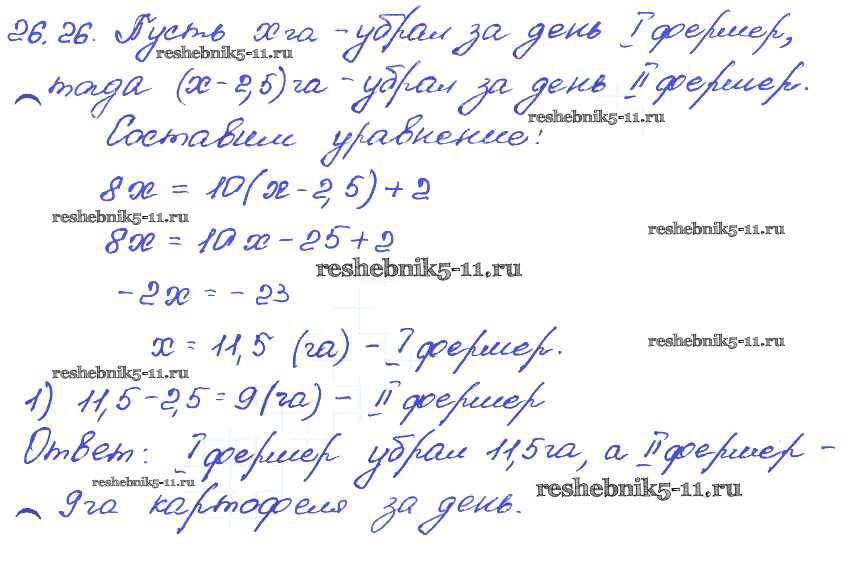 26.26. Пусть x га - убрал за день I фермер,
reshebnik5-11.ru
тогда (x - 2,5) га - убрал за день II фермер.
reshebnik5-11.ru
Составим уравнение:
8x = 10(x - 2,5) + 2
reshebnik5-11.ru
reshebnik5-11.ru
8x = 10x - 25 + 2
reshebnik5-11.ru
-2x = -23
x = 11,5 (га) - I фермер.
reshebnik5-11.ru
reshebnik5-11.ru
1) 11,5 - 2,5 = 9 (га) - II фермер
Ответ: I фермер убрал 11,5 га, а II фермер -
reshebnik5-11.ru
reshebnik5-11.ru
9 га картофеля за день.